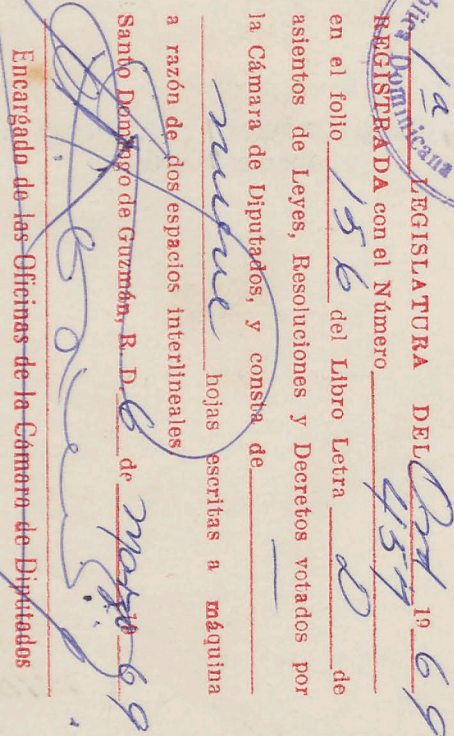 1ª LEGISLATURA DEL Ord 19 69
REGISTRADA con el Número 457
en el folio 156 del Libro Letra D de
asientos de Leyes, Resoluciones y Decretos votados por
la Cámara de Diputados, y consta de
nueve hojas escritas a máquina
a razón de dos espacios interlineales
Santo Domingo de Guzmán, R. D. 6 de Marzo 69
Encargado de las Oficinas de la Cámara de Diputados
Dominicana